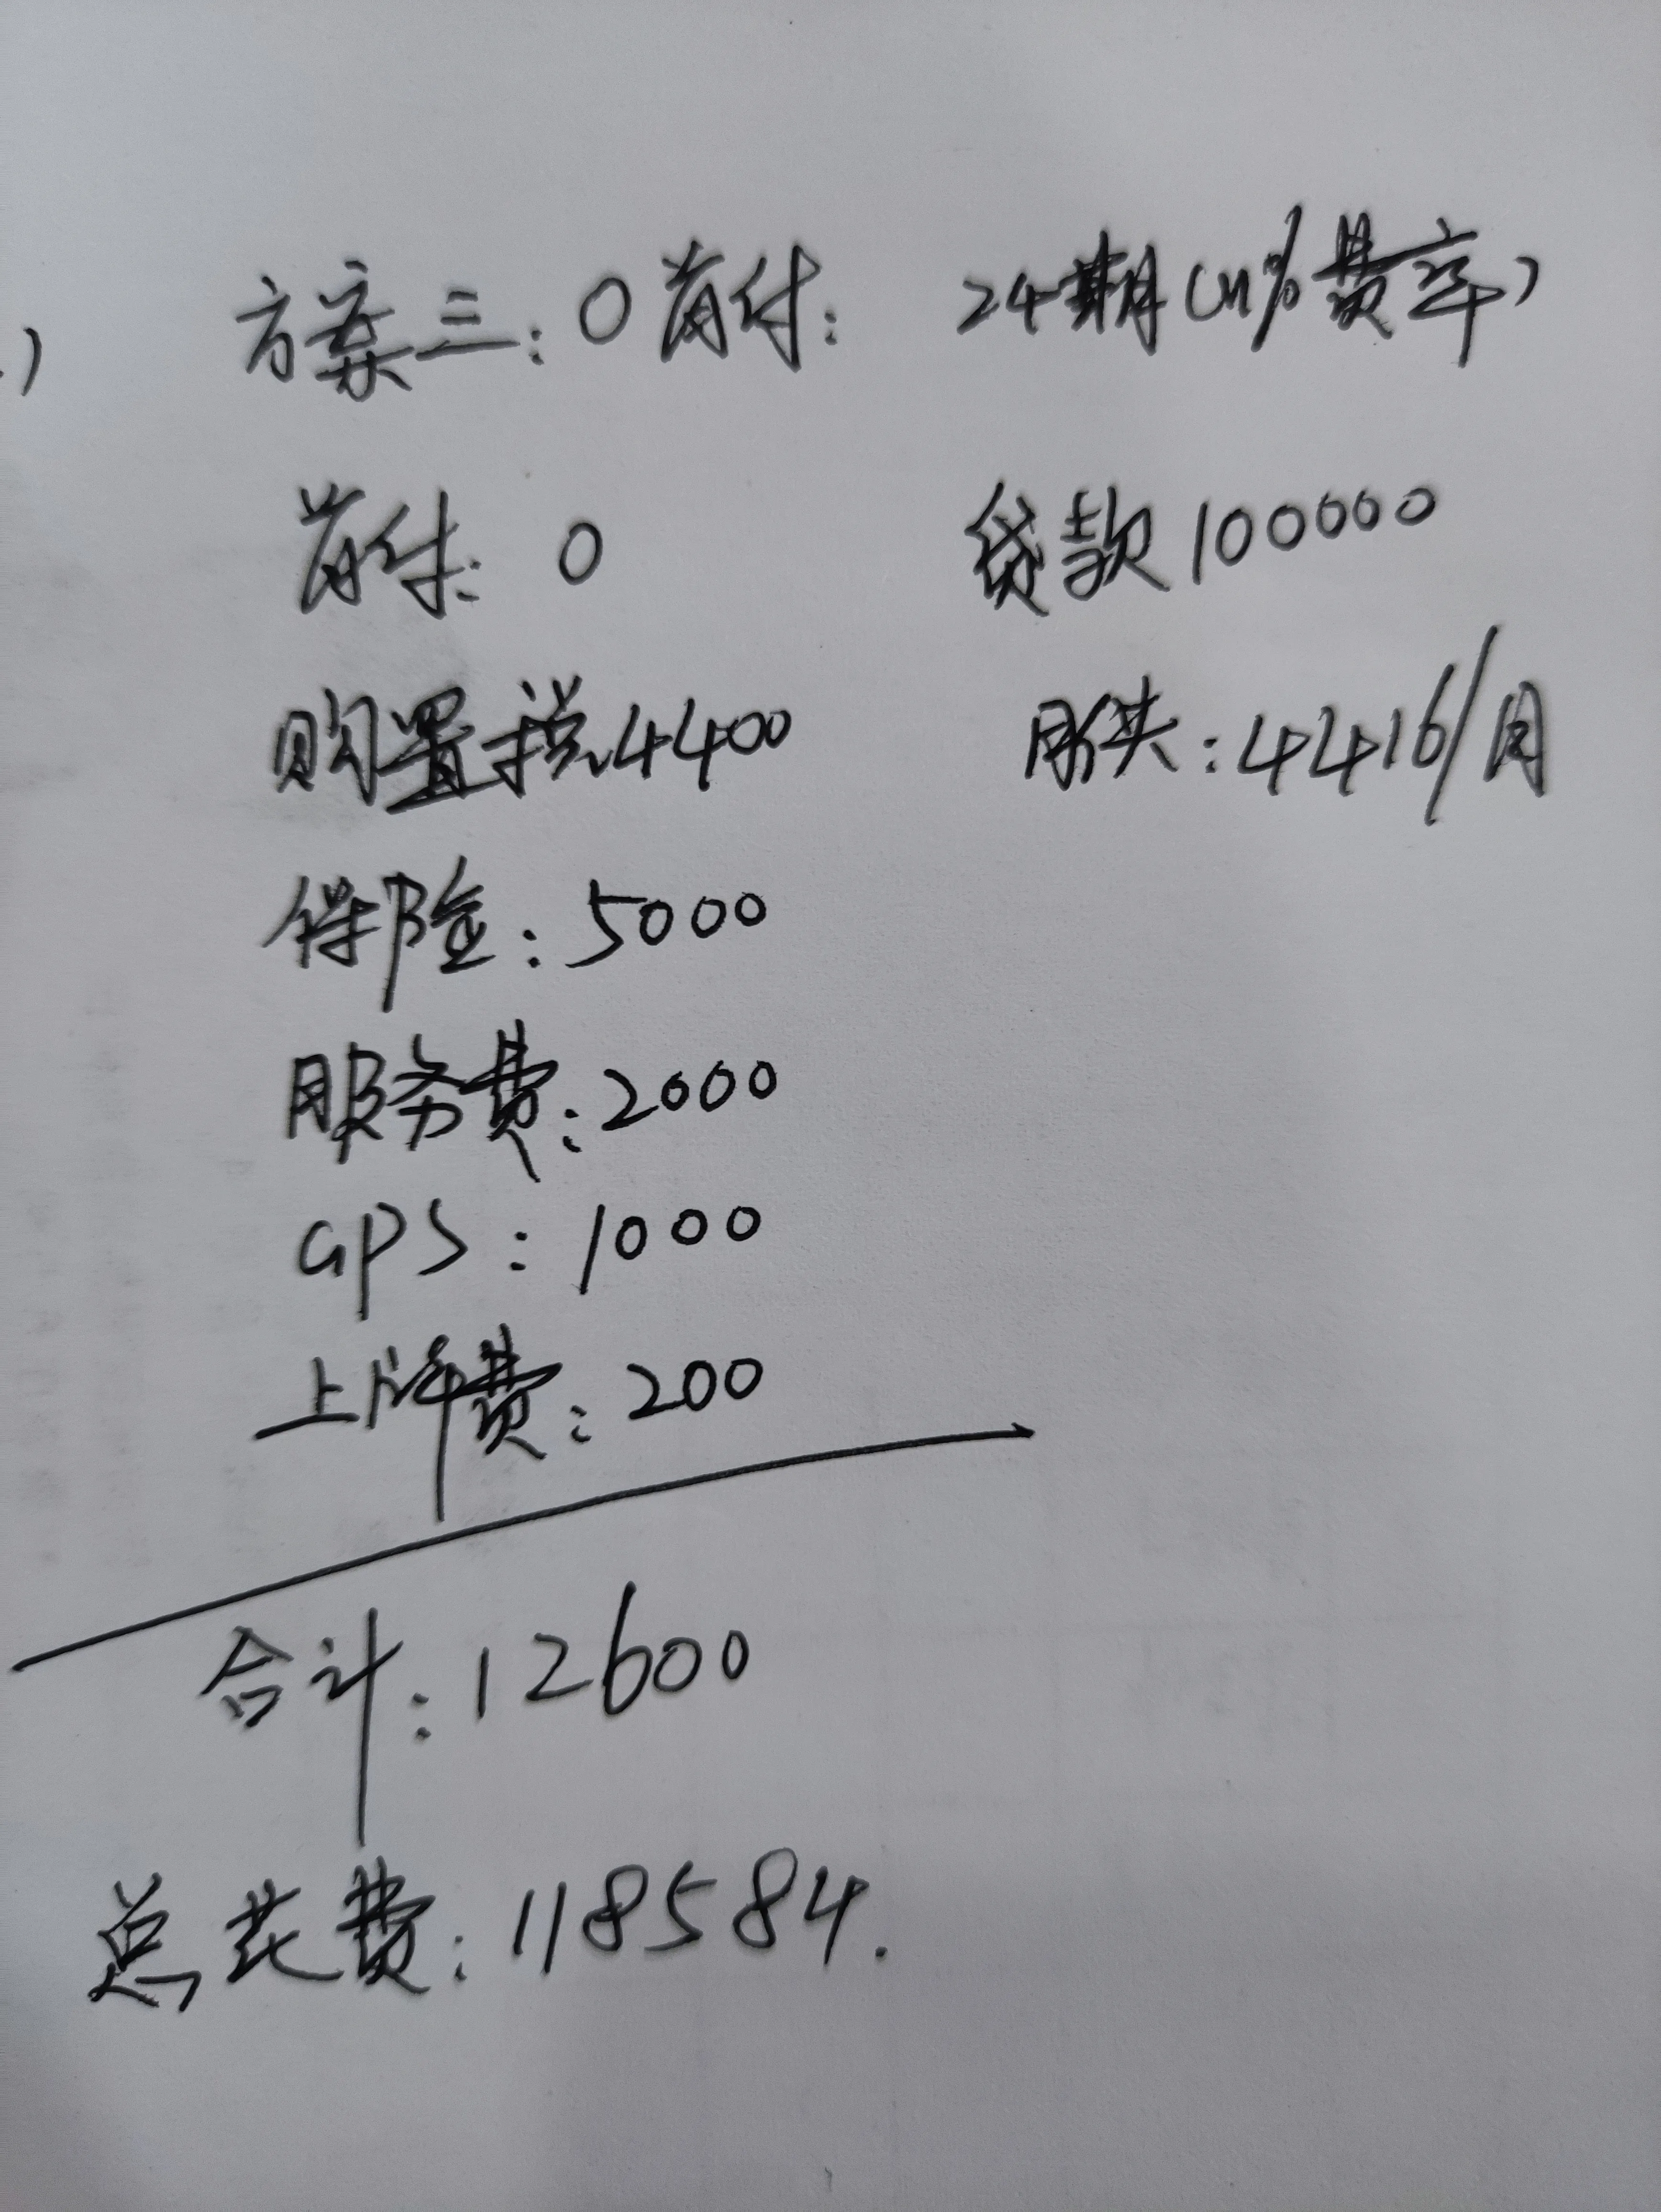 方案三：0首付： 24期（11%费率）
）
首付：0 贷款100000
购置税4400 月供：4416/月
保险：5000
服务费：2000
GPS：1000
上牌费：200
合计：12600
总花费：118584.